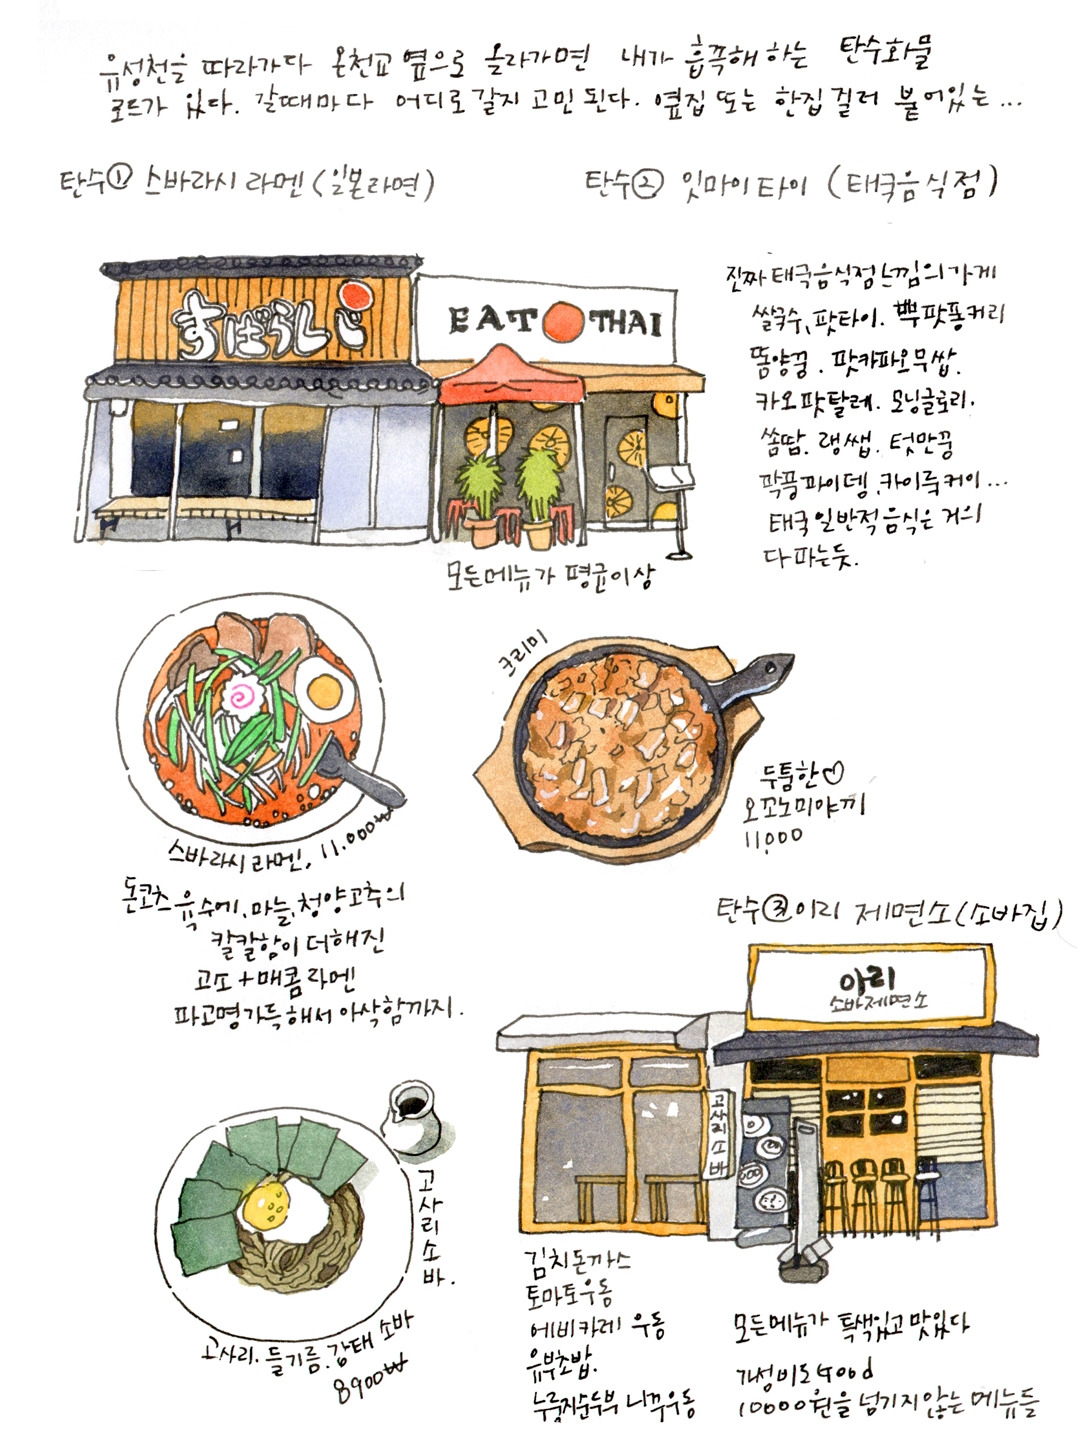 유성천을 따라가다 온천교 옆으로 올라가면 내가 흡족해 하는 탄수화물
로드가 있다. 갈때마다 어디로갈지 고민된다. 옆집 또는 한집 걸러 붙어있는...
탄수① 스바라시 라멘 (일본라면)
탄수② 잇마이타이 (태국음식점)
すばらしい
EAT THAI
진짜 태국음식점 느낌의 가게
쌀국수, 팟타이. 뿌팟퐁커리
똠양꿍. 팟카파오무쌉.
카오팟탈레. 모닝글로리.
쏨땀. 랭쌥. 텃만꿍
팍풍파이뎅. 카이룩커이...
태국 일반적음식은 거의
다 파는듯.
모든메뉴가 평균이상
크리미
두툼한♡
오꼬노미야끼
11,000
스바라시 라멘, 11,000₩
돈코츠 육수에, 마늘, 청양고추의
칼칼함이 더해진
고소+매콤 라멘
파고명가득해서 아삭함까지.
탄수③ 이리 제면소 (소바집)
이리
소바제면소
고사리소바
고사리소바.
고사리. 들기름. 감태 소바
8900₩
김치돈까스
토마토우동
에비카레 우동
유부초밥.
누룽지순두부 니꾸우동
모든메뉴가 특색있고 맛있다
가성비도 Good
10000원을 넘기지않는 메뉴들